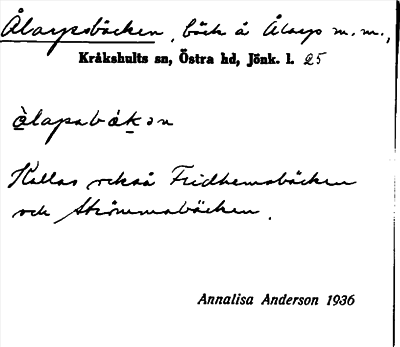 Ålarpsbäcken, bäck å Ålarp m.m.,
Kråkshults sn, Östra hd, Jönk. l. 25
Kallas också Fridhemsbäcken
och Strömmabäcken.
Annalisa Anderson 1936